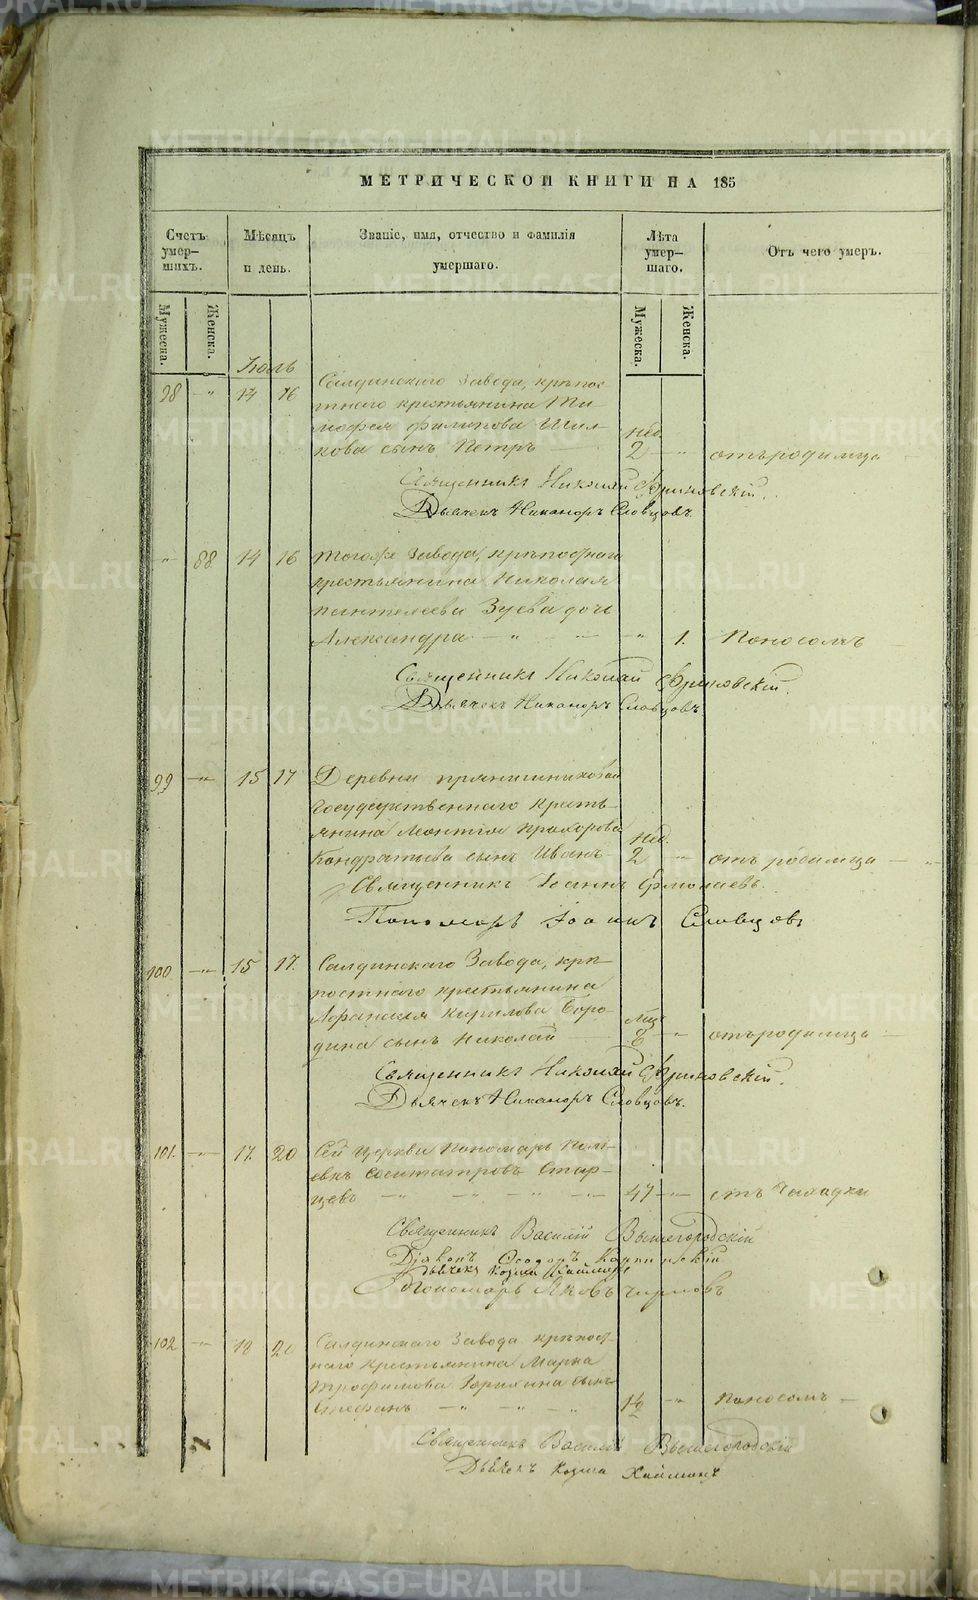 МЕТРИЧЕСКОЙ КНИГИ НА 185
Счетъ умер–шихъ.
Мѣсяцъ и день.
Званіе, имя, отчество и фамилія умершаго.
Лѣта умер–шаго.
Отъ чего умеръ.
Мужеска.
Женска.
Мужеска.
Женска.
Іюль
98 " 14 16 Салдинскаго Завода, крѣпос-
тнаго крестьянина Ти-
мофея Филипова Шил-
кова сынъ Петръ нед. 2 " отъ родимца
Священникъ Николай
Дьячекъ Никаноръ Словцовъ.
" 88 14 16 Тогоже Завода, крѣпостнаго
крестьянина Николая
Пантелеева Зуева дочь
Александра " " 1. Поносомъ
Священникъ Николай
Дьячекъ Никаноръ Словцовъ.
99 " 15 17 Деревни
Государственнаго кресть-
янина Леонтія Прохорова
Кондратьева сынъ Иванъ нед. 2 " отъ родимца
Священникъ Іоаннъ
Пономарь Іоаннъ Словцовъ
100 " 15 17. Салдинскаго Завода, крѣ-
постнаго крестьянина
Афанасія Кирилова Боро-
дина сынъ Николай " отъ родимца
Священникъ Николай
Дьячекъ Никаноръ Словцовъ.
101. " 17. 20 Сей Церкви Пономарь
Стар-
цевъ " " " 47 " отъ Чахадки
Священникъ Василій Вышегородскій
Діаконъ
Дьячекъ Козма
Пономарь Яковъ
102 " 18 20 Салдинскаго Завода крѣпост-
наго крестьянина Марка
Трофимова сынъ
Стефанъ " " " " Поносомъ
Священникъ Василій Вышегородскій
Дьячекъ Козма
METRIKI.GASO-URAL.RU